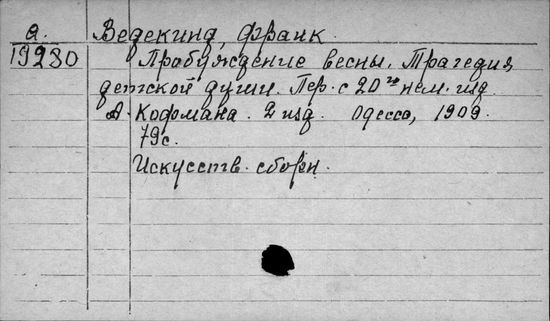 а. Ведекинд, Франк.
19280 Пробуждение весны. Трагедия
детской души. Пер. с 20го нем. изд.
А. Кофмана. 2 изд. Одесса, 1909.
79с.
Искусств. сборн.